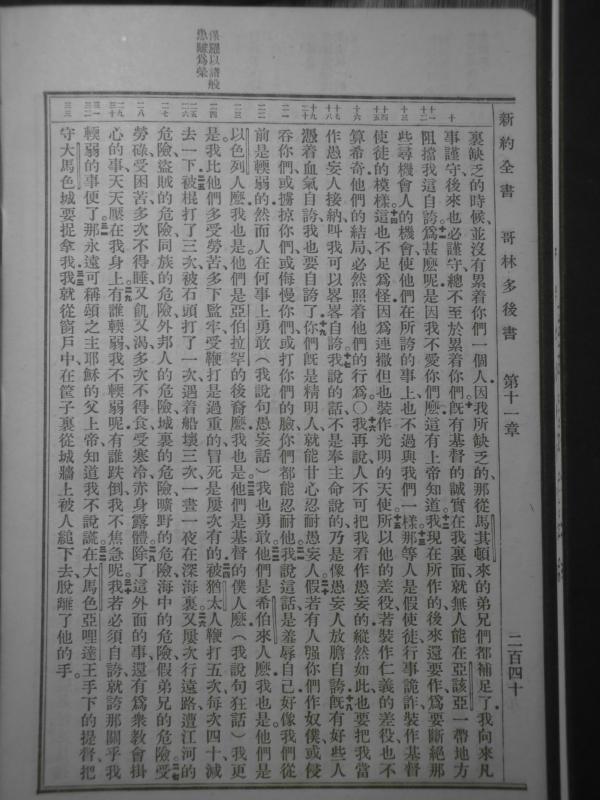 新約全書　哥林多後書　第十一章　二百四十
裏缺乏的時候、並沒有累着你們一個人、因我所缺乏的、那從馬其頓來的弟兄們都補足了、我向來凡
事謹守、後來也必謹守、總不至於累着你們。既有基督的誠實在我裏面、就無人能在亞該亞一帶地方
阻擋我這自誇。為甚麽呢、是因我不愛你們麽、這有上帝知道。我現在所作的、後來還要作、為要斷絕那
些尋機會人的機會、使他們在所誇的事上、也不過與我們一樣。那等人是假使徒、行事詭詐、裝作基督
使徒的模樣。這也不足為怪、因為連撒但也裝作光明的天使。所以他的差役、若裝作仁義的差役、也不
算希奇、他們的結局、必然照着他們的行為。〇我再說、人不可把我看作愚妄的、縱然如此、也要把我當
作愚妄人接納、叫我可以畧畧自誇。我說的話、不是奉主命說的、乃是像愚妄人放膽自誇。既有好些人
憑着血氣自誇、我也要自誇了。你們既是精明人、就能甘心忍耐愚妄人。假若有人强你們作奴僕、或侵
吞你們、或擄掠你們、或侮慢你們、或打你們的臉、你們都能忍耐他。我說這話、是羞辱自己、好像我們從
前是輭弱的、然而人在何事上勇敢、（我說句愚妄話）我也勇敢。他們是希伯來人麽、我也是。他們是
以色列人麽、我也是。他們是亞伯拉罕的後裔麽、我也是。他們是基督的僕人麽、（我說句狂話）我更
是、我比他們多受勞苦、多下監牢、受鞭打是過重的、冒死是屢次有的。被猶太人鞭打五次、每次四十減
去一下。被棍打了三次、被石頭打了一次、遇着船壞三次、一晝一夜在深海裏。又屢次行遠路、遭江河的
危險、盜賊的危險、同族的危險、外邦人的危險、城裏的危險、曠野的危險、海中的危險、假弟兄的危險。受
勞碌、受困苦、多次不得睡、又飢又渴、多次不得食、受寒冷、赤身露體。除了這外面的事、還有為衆教會掛
心的事、天天壓在我身上。有誰輭弱、我不輭弱呢、有誰跌倒、我不焦急呢。我若必須自誇、就誇那關乎我
輭弱的事便了。那永遠可稱頌之主耶穌的父上帝、知道我不說謊。在大馬色亞哩達王手下的提督、把
守大馬色城要捉拿我。我就從窗戶中、在筐子裏、從城牆上被人縋下去、脫離了他的手。